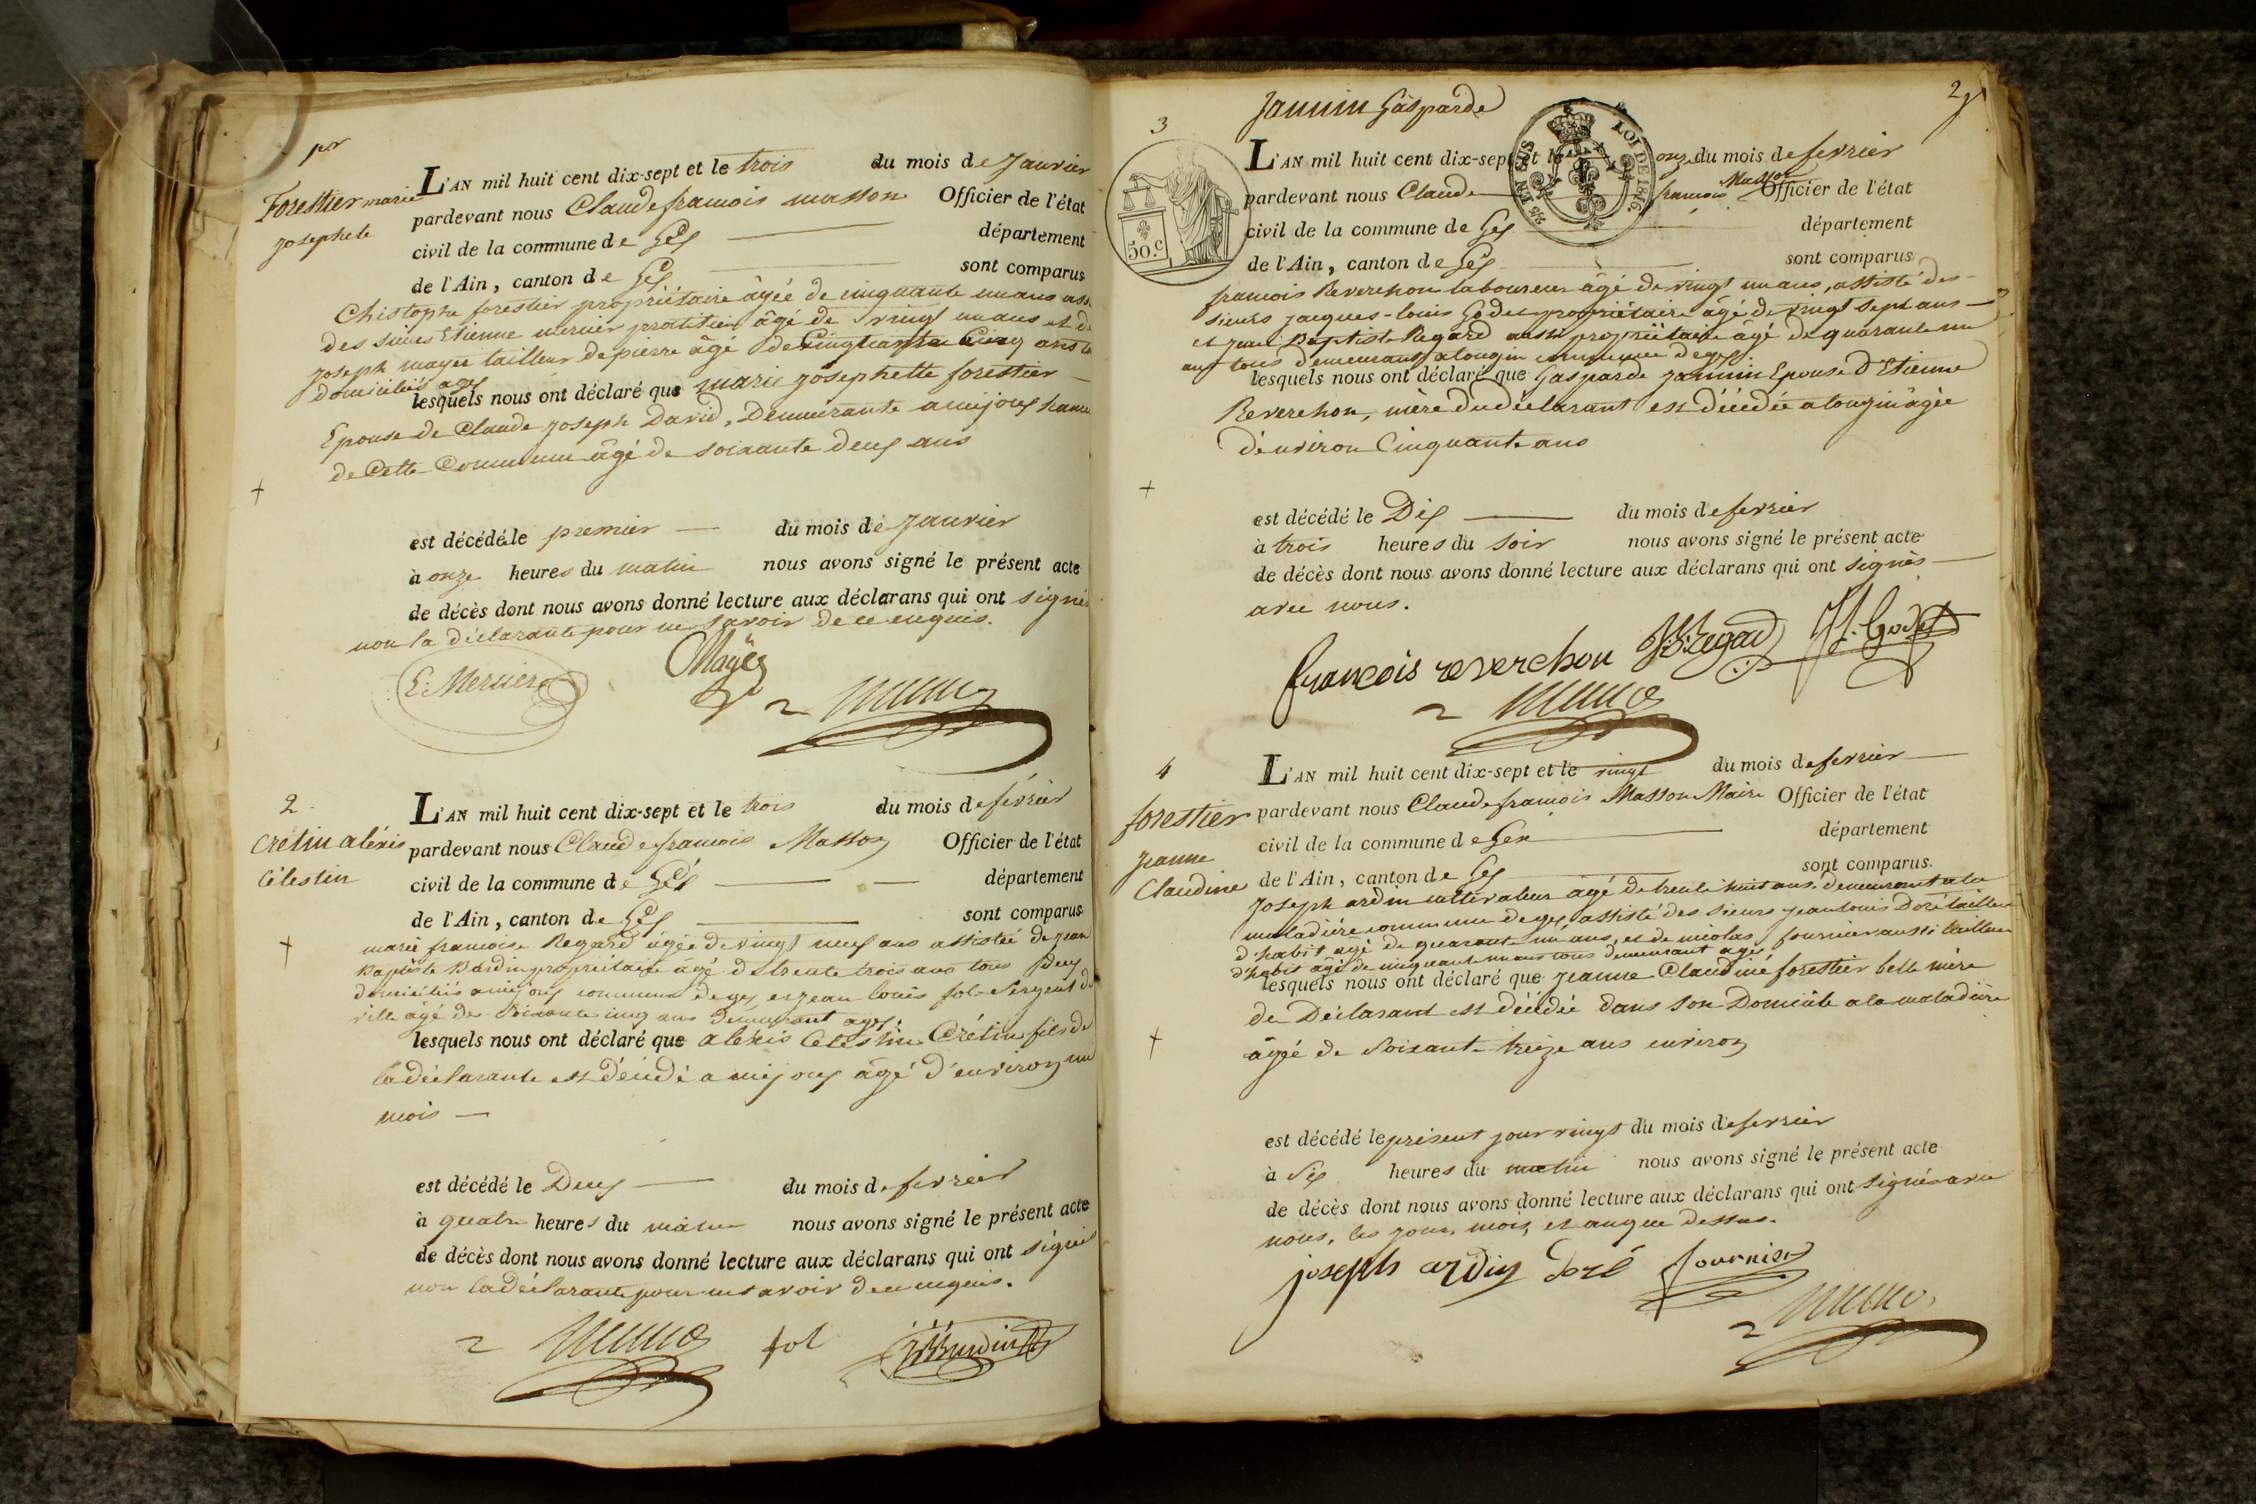 per
Forestier marie
josephete
L'AN mil huit cent dix-sept et le trois du mois de Janvier
pardevant nous Claude francois masson Officier de l'état
civil de la commune de Gex département
de l'Ain, canton de Gex sont comparus
Chistophe forestier propriétaire âgéé de cinquante un ans ass
des sieurs Etienne mercier praticien âgé de vingt un ans et de
joseph mayer tailleur de pierre âgé de Cinquante Cinq ans
domiciliés a gex
lesquels nous ont déclaré que marie josephette forestier
Epouse de Claude joseph David, Demeurante a mijoux hameau
de Cette Commune âgé de soixante deux ans
est décédé le premier du mois de Janvier
à onze heures du matin nous avons signé le présent acte
de décès dont nous avons donné lecture aux déclarans qui ont signés
non la déclarante pour ne savoir de ce enquis.
E. Mercier
Mayer
2
Crétin aléxis
Célestin
L'AN mil huit cent dix-sept et le trois du mois de février
pardevant nous Claude francois Masson Officier de l'état
civil de la commune de Gex département
de l'Ain, canton de Gex sont comparus
marie francoise Regard âgée de vingt neuf ans assistée de jean
Baptiste Bardin propriétaire âgé de trente trois ans tous Deux
domiciliés a mijoux commune de gex, et jean louis fol Sergent de
ville âgé de soixante cinq ans demeurant a gex.
lesquels nous ont déclaré que aléxis Celestin Crétin fils de
la déclarante est décédé a mijoux âgé d'environ un
mois
est décédé le Deux du mois de fevrier
à quatre heures du matin nous avons signé le présent acte
de décès dont nous avons donné lecture aux déclarans qui ont signé
non la déclarante pour ne savoir de ce enquis.
fol
2
3
Jannin Gasparde
50.c
25 EN SUS
LOI DE 1816.
L'AN mil huit cent dix-sept et le onze du mois de fevrier
pardevant nous Claude francois Masson Officier de l'état
civil de la commune de Gex département
de l'Ain, canton de Gex sont comparus
francois Reverchon laboureur âgé de vingt un ans, assisté des
sieurs jacques-louis Godet propriétaire âgé de vingt sept ans
et jean Baptiste Regard aussi propriétaire âgé de quarante un
ans tous demeurans a tougin commune de gex
lesquels nous ont déclaré que Gasparde jannin Epouse D'Etienne
Reverchon, mère du déclarant est décédée a tougin âgée
d'environ Cinquante ans
est décédé le Dix du mois de fevrier
à trois heures du soir nous avons signé le présent acte
de décès dont nous avons donné lecture aux déclarans qui ont signés
avec nous.
francois reverchon J.B. Regard J.L. Godet
4
forestier
Jeanne
Claudine
L'AN mil huit cent dix-sept et le vingt du mois de fevrier
pardevant nous Claude francois Masson Maire Officier de l'état
civil de la commune de Gex département
de l'Ain, canton de Gex sont comparus
Joseph ardin cultivateur âgé de trente huit ans demeurant a la
maladière commune de gex assisté des sieurs jean louis Doré tailleur
d'habit agé de quarante un ans, et de nicolas fournier aussi tailleur
d'habit âgé de cinquante un ans tous demeurant a gex
lesquels nous ont déclaré que jeanne Claudine forestier belle mère
de Déclarant est décédée dans son Domicile a la maladière
âgé de Soixante treize ans environ
est décédé le présent jour vingt du mois de fevrier
à Six heures du matin nous avons signé le présent acte
de décès dont nous avons donné lecture aux déclarans qui ont signés avec
nous, les jour, mois, et an que dessus.
joseph ardin doré fournier